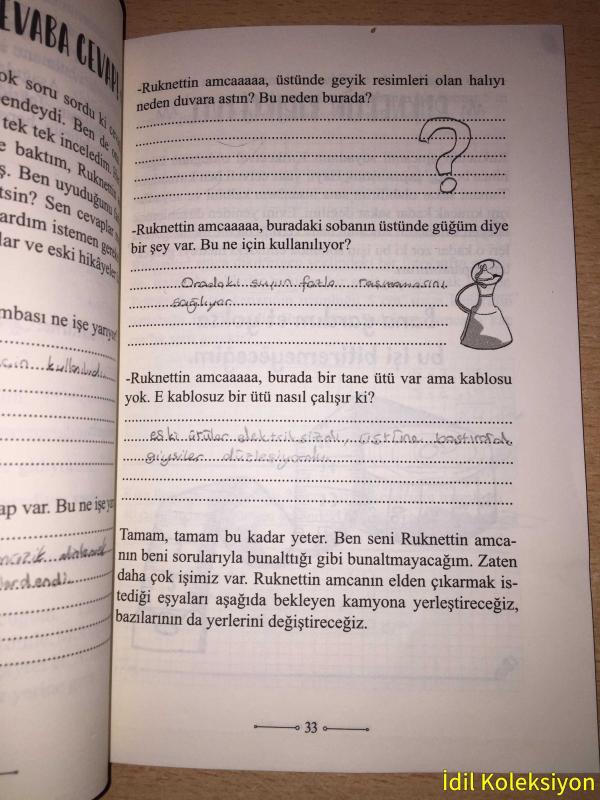 EVABA CEVAP
ok soru sordu ki
endeydi. Ben de
tek tek inceledim.
e baktım, Ruknettin
ş. Ben uyuduğunu
tsin? Sen cevaplar
ardım istemen
lar ve eski hikâyeler
mbası ne işe yarıyor
için kullanılırdı.
ap var. Bu ne işe
müzik dinlemek
lardendi.
-Ruknettin amcaaaaa, üstünde geyik resimleri olan halıyı
neden duvara astın? Bu neden burada?
?
-Ruknettin amcaaaaa, buradaki sobanın üstünde güğüm diye
bir şey var. Bu ne için kullanılıyor?
Oradaki suyun fazla taşmamasını
sağlıyor.
-Ruknettin amcaaaaa, burada bir tane ütü var ama kablosu
yok. E kablosuz bir ütü nasıl çalışır ki?
eski ütüler elektriksizdi, üstüne bastırarak
giysiler düzleşiyordu.
Tamam, tamam bu kadar yeter. Ben seni Ruknettin amca-
nın beni sorularıyla bunalttığı gibi bunaltmayacağım. Zaten
daha çok işimiz var. Ruknettin amcanın elden çıkarmak is-
tediği eşyaları aşağıda bekleyen kamyona yerleştireceğiz,
bazılarının da yerlerini değiştireceğiz.
33
İdil Koleksiyon